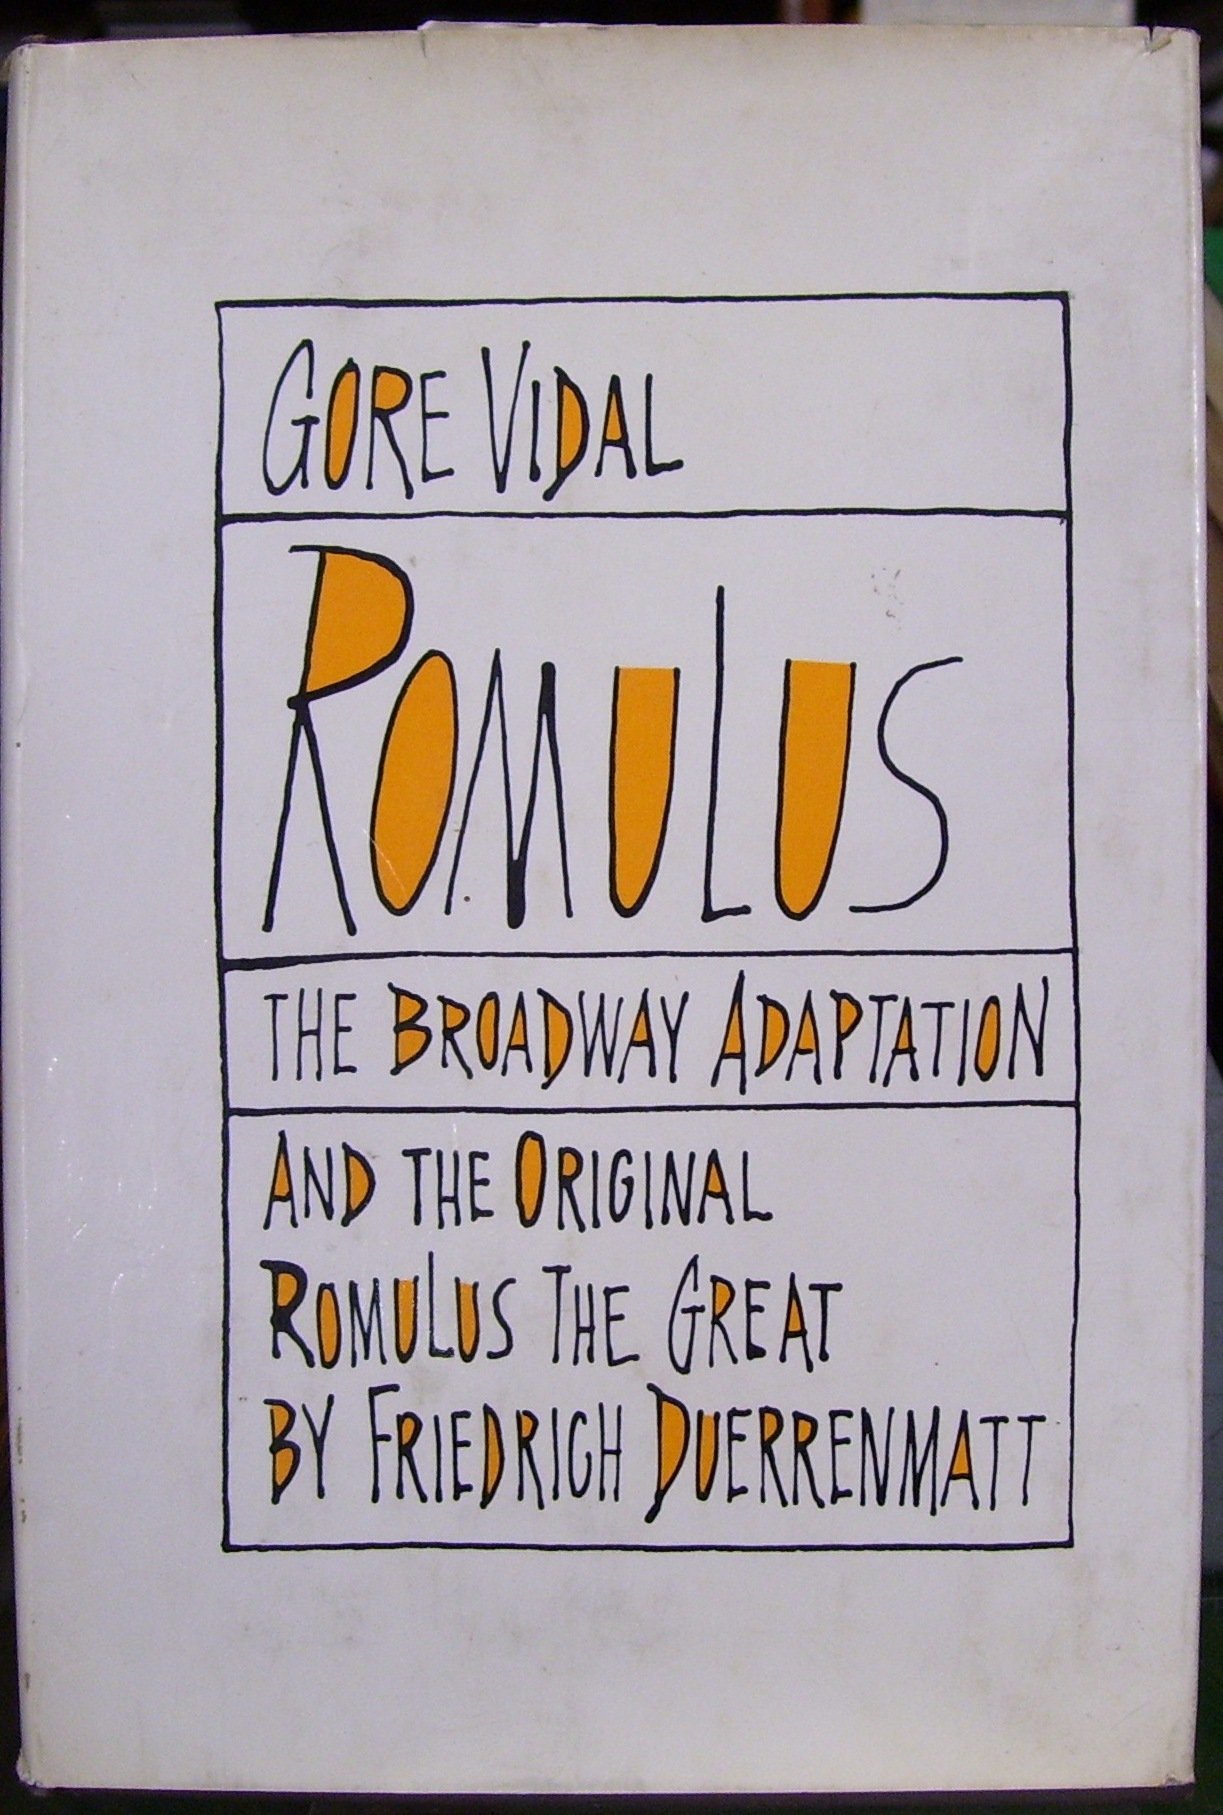 GORE VIDAL
ROMULUS
THE BROADWAY ADAPTATION
AND THE ORIGINAL
ROMULUS THE GREAT
BY FRIEDRICH DUERRENMATT